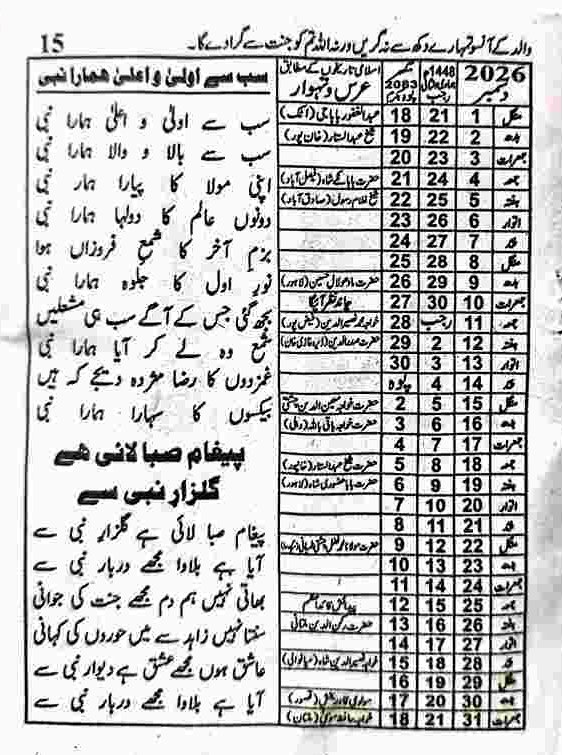 والد کے آنسو تمہارے دکھ سے نہ گریں ورنہ اللہ تم کو جنت سے گرا دے گا۔ 15
سب سے اولیٰ و اعلیٰ ہمارا نبی
سب سے اولیٰ و اعلیٰ ہمارا نبی
سب سے بالا و والا ہمارا نبی
اپنی مولا کا پیارا ہمار نبی
دونوں عالم کا دولہا ہمارا نبی
بزم آخر کا شمع فروزاں ہوا
نور اول کا جلوہ ہمارا نبی
بجھ گئی جس کے آگے سب ہی مشعلیں
شمع وہ لے کر آیا ہمارا نبی
غمزدوں کا رضا مژدہ دیجے کہ ہیں
بیکسوں کا سہارا ہمارا نبی
پیغام صبا لائی ھے
گلزار نبی سے
پیغام صبا لائی ہے گلزار نبی سے
آیا ہے بلاوا مجھے دربار نبی سے
بھاتی نہیں ہم دم مجھے جنت کی جوانی
سنتا نہیں زاہد سے میں حوروں کی کہانی
عاشق ہوں مجھے عشق ہے دیوار نبی سے
آیا ہے بلاوا مجھے دربار نبی سے
2026 دسمبر 1448ھ رجب 2083 اسلامی تاریخوں کے مطابق عرس و تہوار
منگل 1 21 18 عبدالغفور باباجی (اٹک)
بدھ 2 22 19 شیخ عبدالستار (خان پور)
جمعرات 3 23 20
جمعہ 4 24 21 (فیصل آباد)
ہفتہ 5 25 22 شیخ غلام رسول (صادق آباد)
اتوار 6 26 23
پیر 7 27 24
منگل 8 28 25
بدھ 9 29 26 حضرت مادھولال حسین (لاہور)
جمعرات 10 30 27 چاند نظر آئیگا
جمعہ 11 رجب 28
ہفتہ 12 2 29 (ڈیرہ غازی خان)
اتوار 13 3 30
پیر 14 4 پوہ
منگل 15 5 2 حضرت خواجہ معین الدین چشتی
بدھ 16 6 3 حضرت خواجہ باقی باللہ (دہلی)
جمعرات 17 7 4
جمعہ 18 8 5 حضرت شیخ عبدالستار (خانپور)
ہفتہ 19 9 6 (لاہور)
اتوار 20 10 7
پیر 21 11 8
منگل 22 12 9
بدھ 23 13 10
جمعرات 24 14 11
جمعہ 25 15 12 پیدائش قائداعظم
ہفتہ 26 16 13 حضرت رکن الدین ملتانی
اتوار 27 17 14
پیر 28 18 15 (میانوالی)
منگل 29 19 16
بدھ 30 20 17 (قصور)
جمعرات 31 21 18 (ملتان)